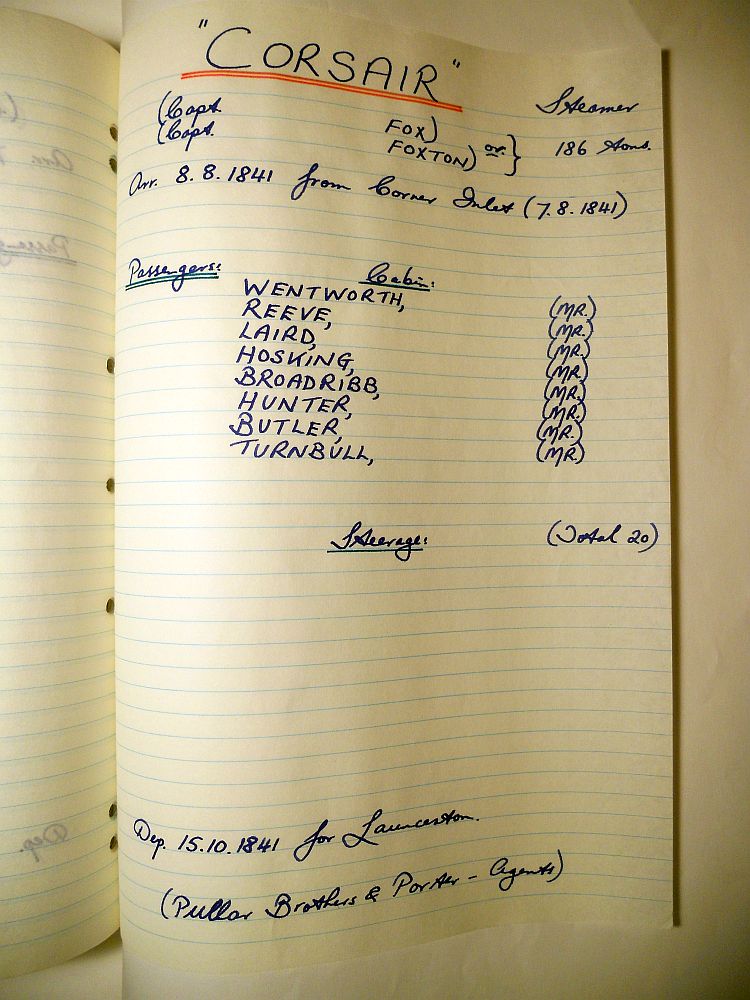 "CORSAIR"
(Capt. FOX) or } Steamer
(Capt. FOXTON) 186 tons.
Arr. 8.8.1841 from Corner Inlet (7.8.1841)
Passengers: Cabin:
WENTWORTH, (MR.)
REEVE, (MR.)
LAIRD, (MR.)
HOSKING, (MR.)
BROADRIBB, (MR.)
HUNTER, (MR.)
BUTLER, (MR.)
TURNBULL, (MR.)
Steerage: (Total 20)
Dep. 15.10.1841 for Launceston.
(Pullar Brothers & Porter - Agents)
Dep.